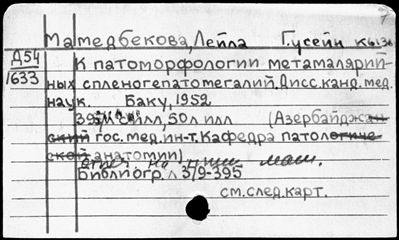 Мамедбекова, Лейла Гусейн К
Д54
1633
К патоморфологии метамалярий-
ных спленогепатомегалий. Дисс. канд. мед.
наук. Баку, 1952
395 л, 50 л илл (Азербайджан-
ский гос. мед. ин-т. Кафедра патологиче-
ской анатомии)
маш.
Библиогр. л 379-395
см. след. карт.